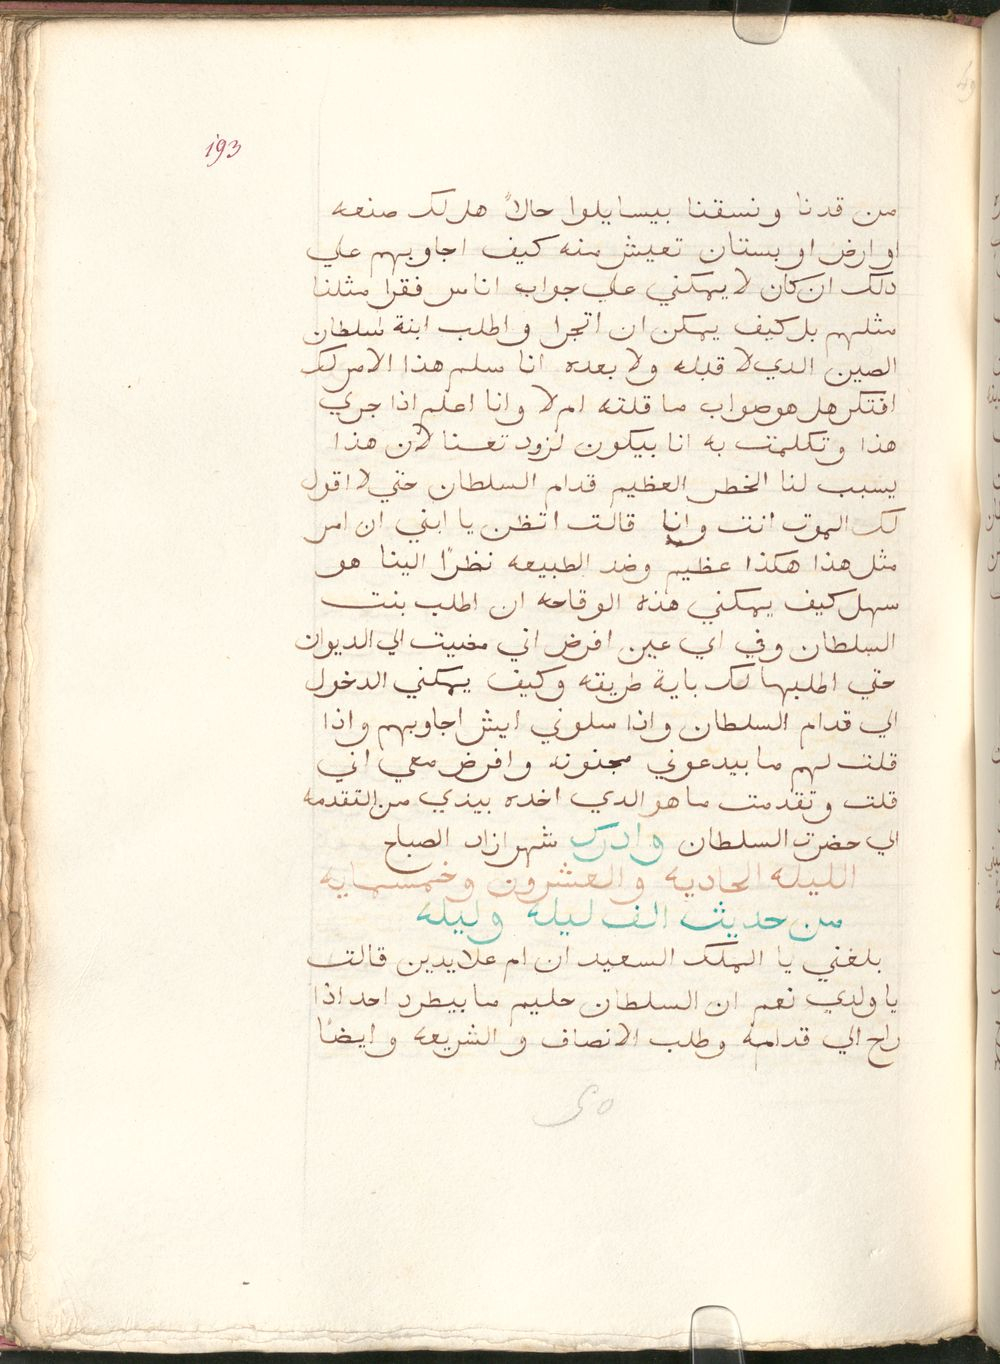 193
من قدنا ونسقنا بيسايلوا حالاً هل لك صنعه
او ارض او بستان تعيش منه كيف اجاوبهم علي
دلك ان كان لا يمكني علي جواب اناس فقرا مثلنا
مثلهم بل كيف يمكن ان اتجرا واطلب ابنة سلطان
الصين الدي لا قبله ولا بعده انا سلم هذا الامر لك
افتكر هل هو صواب ما قلته ام لا وانا اعلم اذا جري
هذا وتكلمت به انا بيكون لزود تعسنا لأن هذا
يسبب لنا الخطر العظيم قدام السلطان حتي لا اقول
لك الموت انت وانا قالت اتظن يا ابني ان امر
مثل هذا هكذا عظيم وضد الطبيعه نظرًا الينا هو
سهل كيف يمكني هذه الوقاحه ان اطلب بنت
السلطان وفي اي عين افرض اني مضيت الي الديوان
حتي اطلبها لك باية طريقه وكيف يمكني الدخول
الي قدام السلطان واذا سلوني ايش اجاوبهم واذا
قلت لهم ما بيدعوني مجنونه وافرض معي اني
قلت وتقدمت ما هو الدي اخده بيدي من التقدمه
الي حضرت السلطان وادرك شهرازاد الصباح
الليله الحاديه والعشرون وخمسمايه
من حديث الف ليله وليله
بلغني يا الملك السعيد ان ام علايدين قالت
يا ولدي نعم ان السلطان حليم ما بيطرد احد اذا
راح الي قدامه وطلب الانصاف والشريعه وايضًا